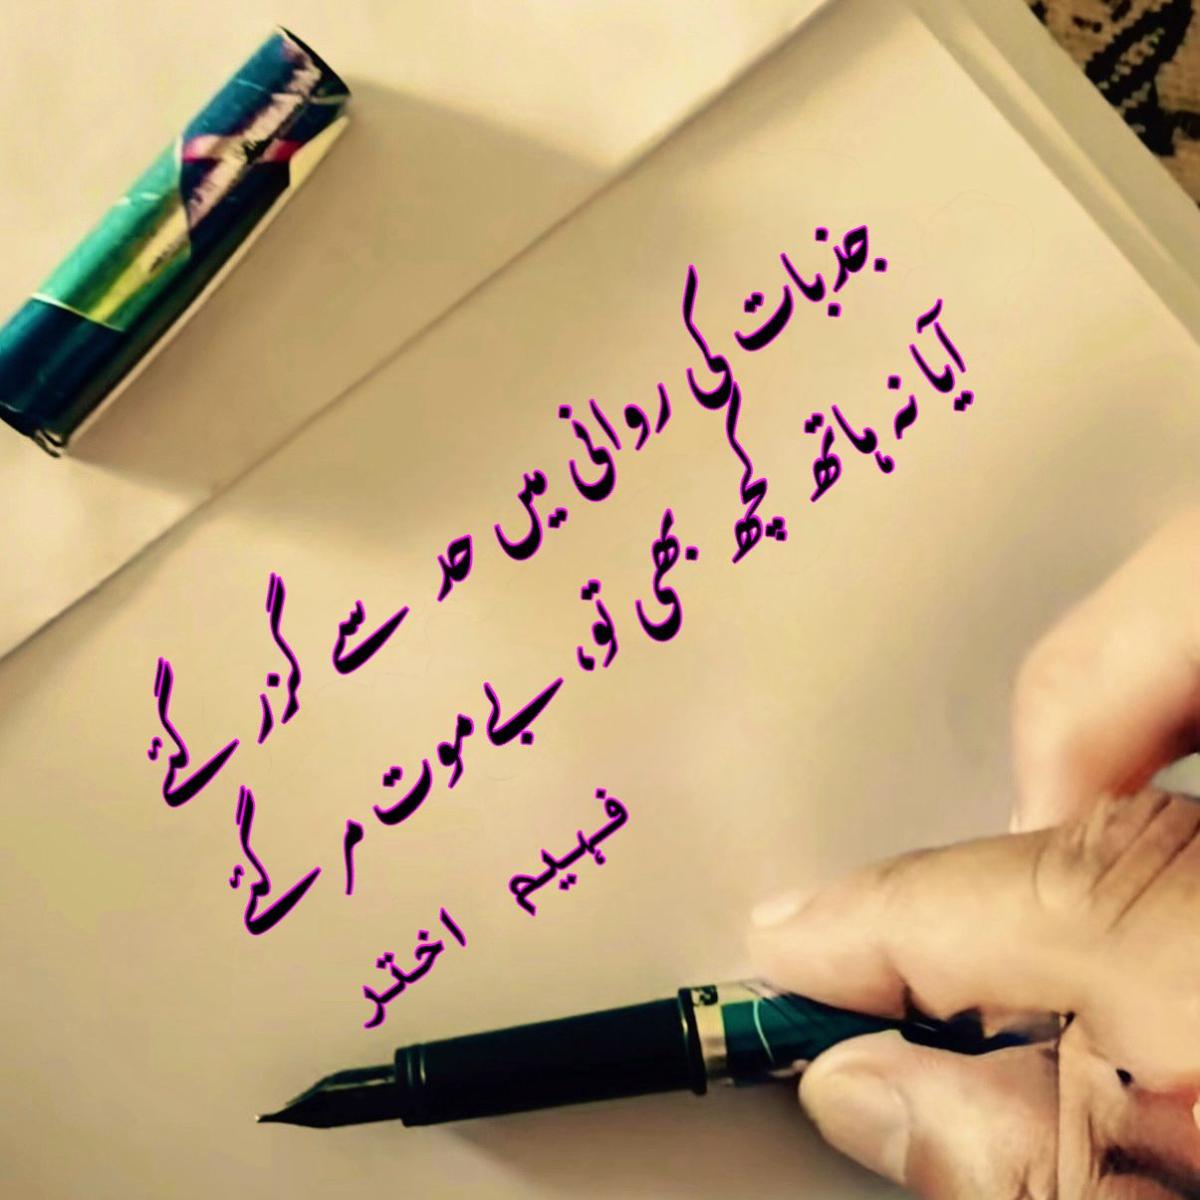 جذبات کی روانی میں حد سے گزر گئے
آیا نہ ہاتھ کچھ بھی تو، بے موت مر گئے
فہیم اختر